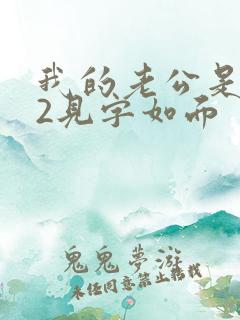 我的老公是
2見字如而
鬼鬼夢遊
未经同意禁止转载